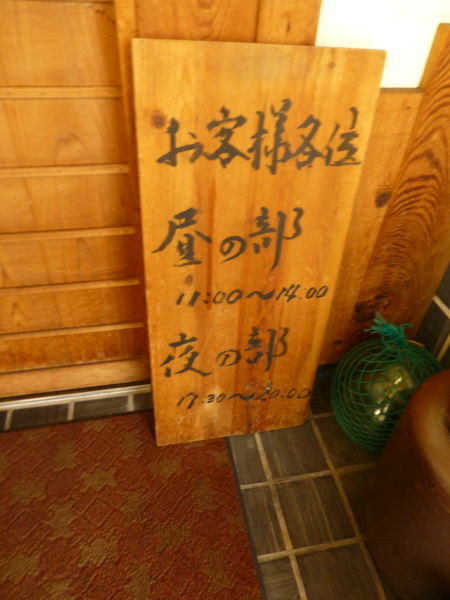 お客様各位
昼の部
11:00～14:00
夜の部
17:30～20:00